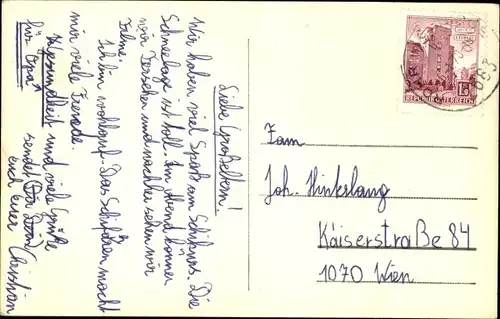 Liebe Großeltern!
Wir haben viel Spaß am Schikurs. Die
Schneelage ist toll. Am Abend können
wir Fernsehen und nachher sehen wir
Filme.
Ich bin wohlauf. Das Schifahren macht
mir viele Freude.
Gesundheit und viele Grüße
für Opa
sendet
euch euer Christian
Fam
Joh. Hinterlang
Kaiserstraße 84
1070 Wien
REPUBLIK ÖSTERREICH